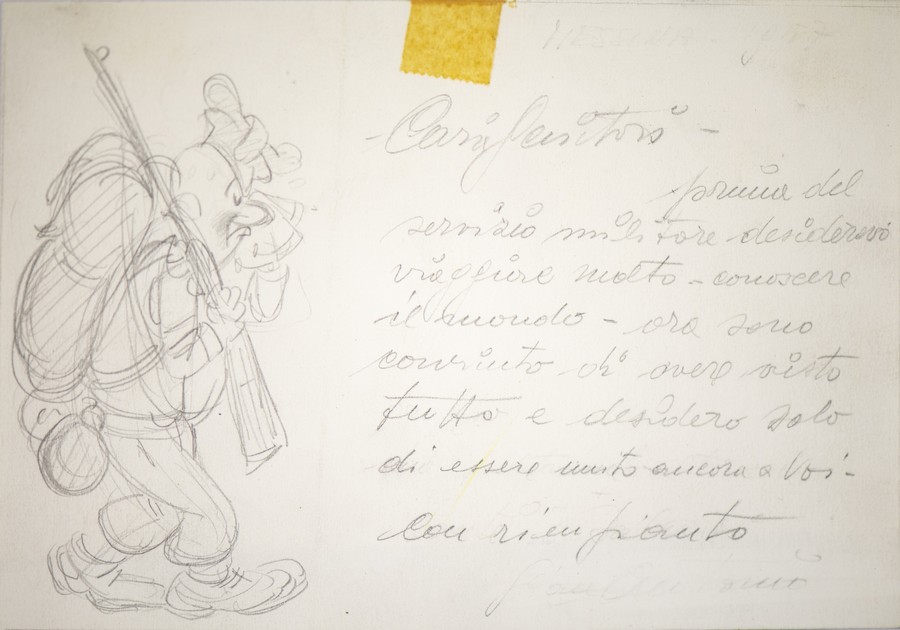 MESSINA - 1957
- Cari Genitori -
prima del
servizio militare desideravo
viaggiare molto - conoscere
il mondo - ora sono
convinto di avere visto
tutto e desidero solo
di essere unito ancora a Voi -
con rimpianto